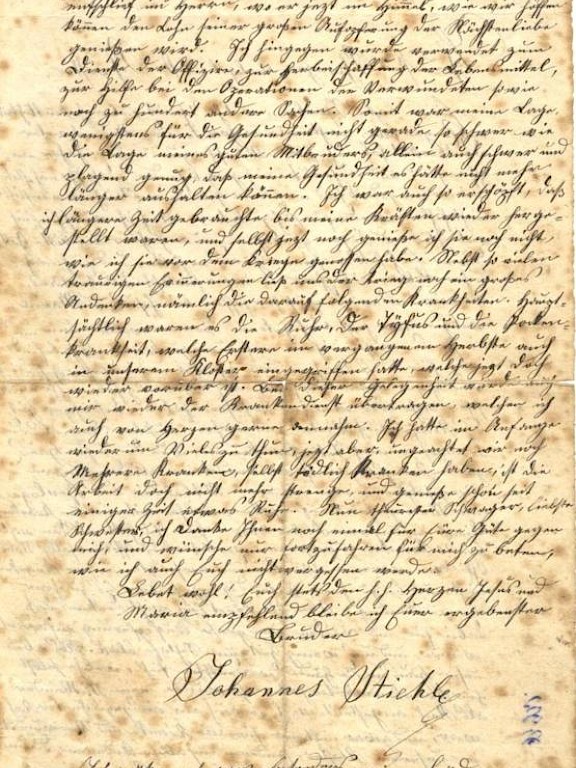 entschlief im Herrn, wo er jetzt im Himmel, wie wir hoffen
können den Lohn seiner großen Aufopferung der Nächstenliebe
genießen wird. Ich hingegen wurde verwendet zum
Dienste der Offizire, zur Herbeischaffung der Lebensmittel,
zur Hilfe bei den Operationen der Verwundeten sowie
noch zu hundert andere Sachen. Somit war meine Lage
wenigstens für die Gesundheit nicht gerade so schwer wie
die Lage meines guten Mitbruders, allein auch schwer und
plagend genug, daß meine Gesundheit es hätte nicht mehr
länger aushalten können. Ich war auch so erschöpft, daß
ich längere Zeit gebrauchte bis meine Kräften wieder herge-
stellt waren, und selbst jetzt noch genieße ich sie noch nicht
wie ich sie vor dem Kriege genossen habe. Nebst so vielen
traurigen Erinnerungen ließ uns der Krieg noch ein großes
Andenken, nämlich die darauf folgenden Krankheiten. Haupt-
sächtlich waren es die Ruhr, der Tyfus und die Pocken-
krankheit, welche Erstere im vergangenen Herbste auch
in unserem Kloster eingegriffen hatte, welche jetzt doch
wieder vorüber ist. Bei dieser Gelegenheit ward
mir wieder der Krankendienst übertragen, welchen ich
auch von Herzen gerne annahm. Ich hatte im Anfange
wiederum Vieles zu thun, jetzt aber, ungeachtet wir noch
Mehrere Kranken, selbst tödlich Kranken haben, ist die
Arbeit doch nicht mehr strenge, und genieße schon seit
einiger Zeit etwas Ruhe. Nun theurester Schwager, liebste
Schwester, ich danke Ihnen noch einmal für Eure Güte gegen
mich, und wünsche nur fortzufahren für mich zu beten,
wie ich auch Euch nicht vergessen werde.
Lebet wohl! Euch stets den h.h. Herzen Jesus und
Maria empfehlend bleibe ich Euer ergebenster
Bruder
Johannes Stiehle